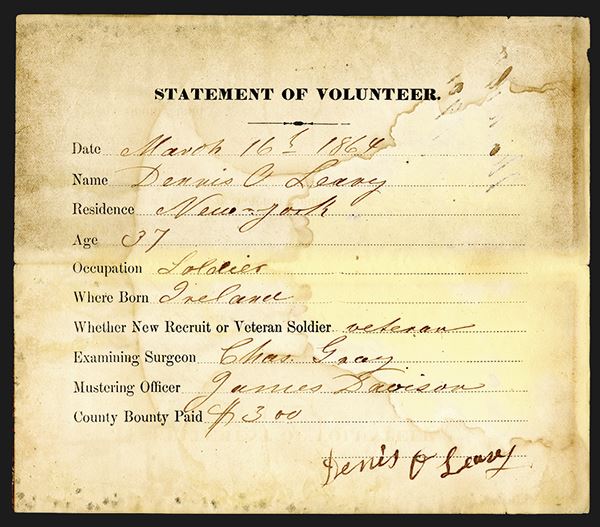 STATEMENT OF VOLUNTEER.
Date March 16th 1864
Name Dennis O Leary
Residence New-York
Age 37
Occupation Soldier
Where Born Ireland
Whether New Recruit or Veteran Soldier veteran
Examining Surgeon Chas. Gray
Mustering Officer James Davison
County Bounty Paid $300
Denis O Leary